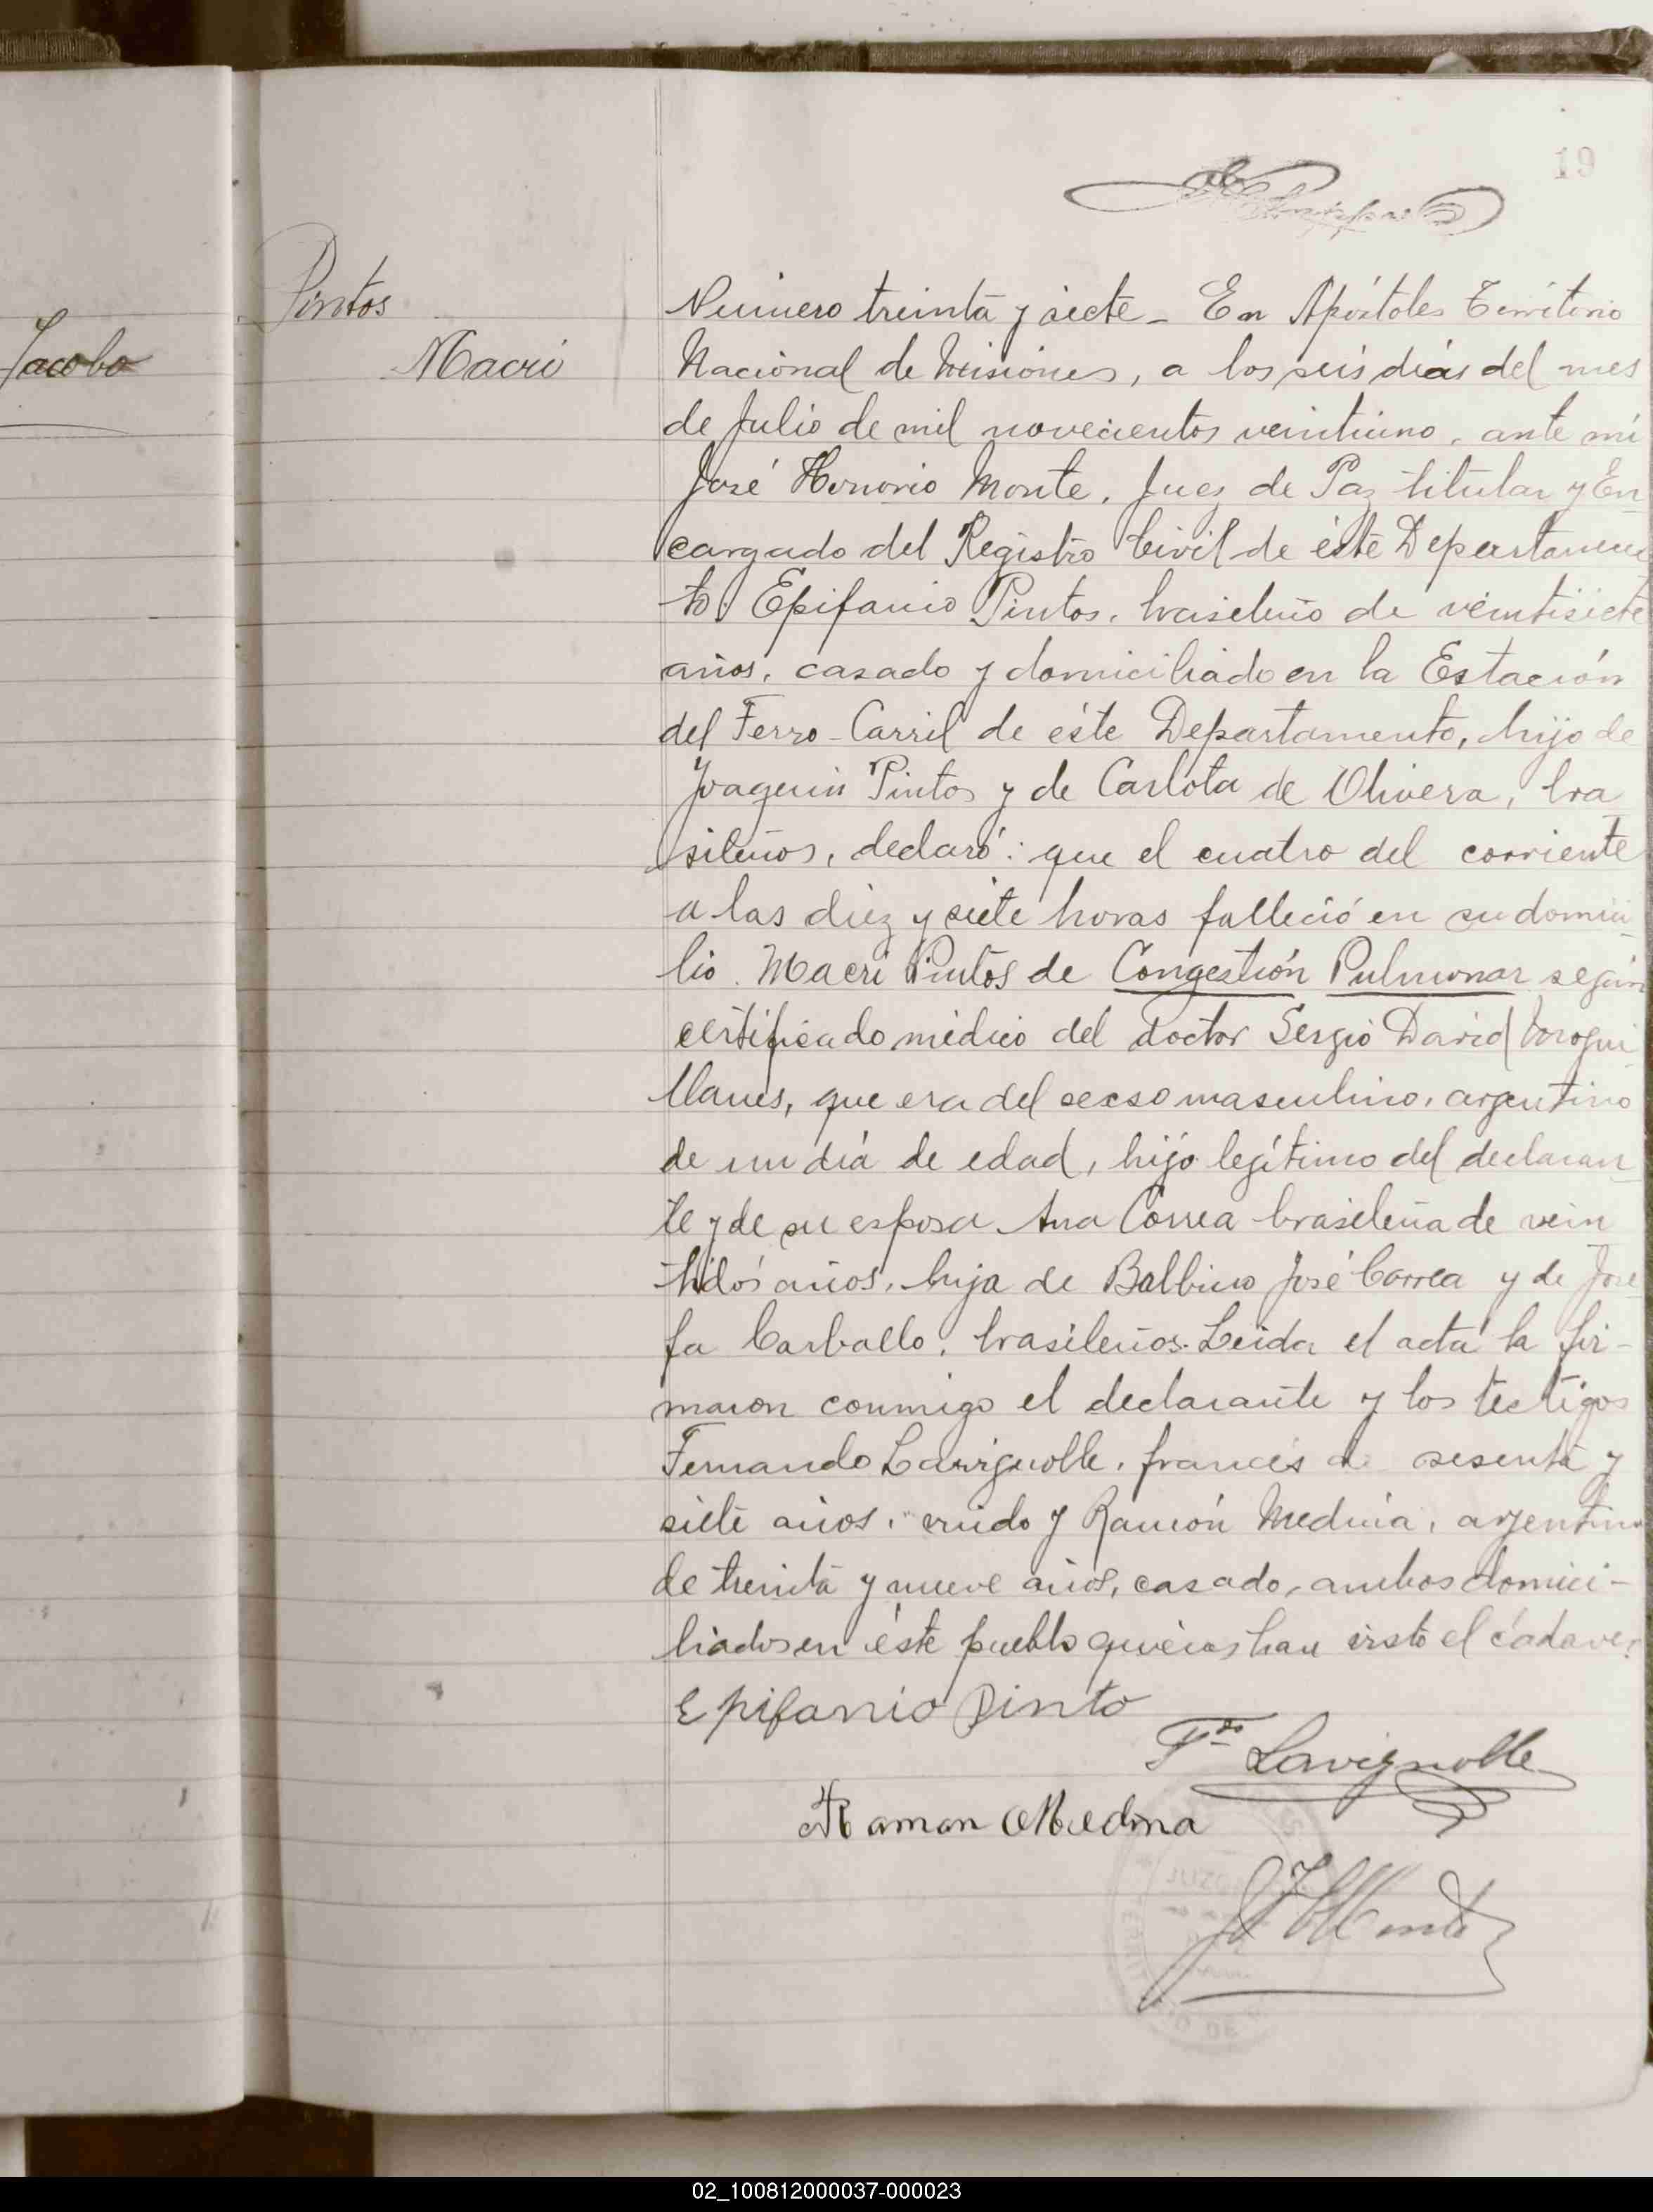 19
Jacobo
Pintos
Macri
Número treinta y siete - En Apóstoles Territorio
Nacional de Misiones, a los seis días del mes
de Julio de mil novecientos veintiuno, ante mi
José Honorio Monte, Juez de Paz titular y En
cargado del Registro Civil de éste Departamen
to, Epifanio Pintos, brasileño de veintisiete
años, casado y domiciliado en la Estación
del Ferro-Carril de éste Departamento, hijo de
Joaquin Pintos y de Carlota de Olivera, bra
sileños, declaró: que el cuatro del corriente
a las diez y siete horas falleció en su domici
lio. Macri Pintos de Congestión Pulmonar según
certificado médico del doctor Sergio David
llanes, que era del secso masculino, argentino
de un día de edad, hijo legítimo del declaran
te y de su esposa Ana Correa brasileña de vein
tidós años, hija de Balbino José Correa y de Jose
fa Carballo, brasileños. Leida el acta la fir-
maron conmigo el declarante y los testigos
Fernando Lavignolle, francés de sesenta y
siete años, viudo y Ramón Medina, argentino
de treinta y nueve años, casado, ambos domici-
liados en éste pueblo quienes han visto el cádaver.
Epifanio Pinto
Fdo Lavignolle
Ramon Medina
JHMonte
02_100812000037-000023